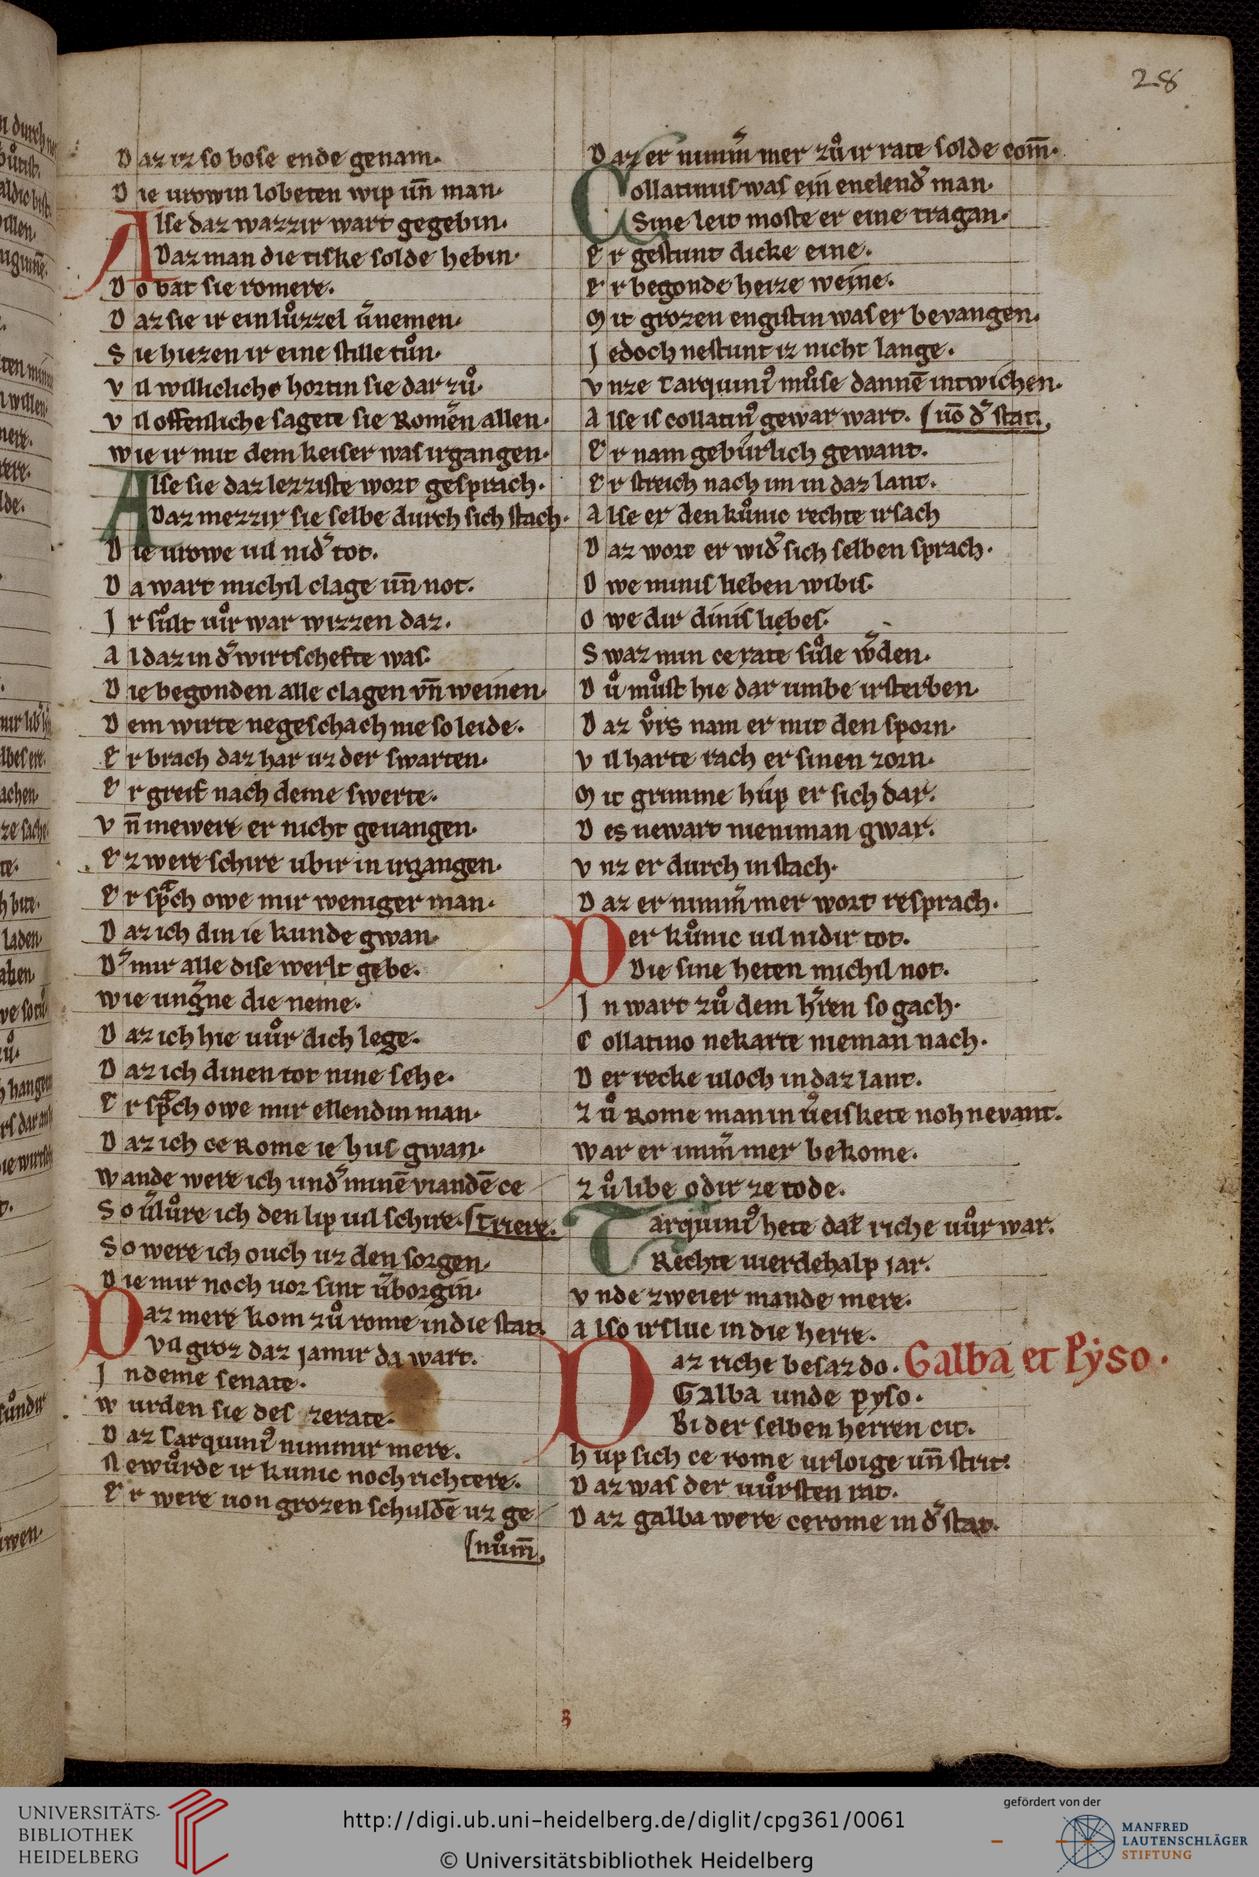 28
Daz iz so bose ende genam·
Die urowin lobeten wip un̄ man·
Alse daz wazzir wart gegebin·
Daz man die tiske solde hebin·
Do bat sie romere·
Daz sie ir ein luͦzzel v̄nemen·
Sie hiezen ir eine stille tuͦn·
vil willicliche hortin sie dar zuͦ·
vil offenliche sagete sie Romen̄ allen·
wie ir mit dem keiser was irgangen·
Alse sie daz lezziste wort gesprach·
Daz mezzir sie selbe durch sich stach·
Die urowe uil nid̄ tot·
Da wart michil clage un̄ not·
Ir suͦlt uuͦr war wizzen daz·
al daz in d̄ wirtschefte was·
Die begonden alle clagen vn̄ weinen·
Dem wirte negeschach nie so leide·
er brach daz har uz der swarten·
er greif nach deme swerte·
vn̄ inwere er nicht geuangen·
ez were schire ubir in irgangen·
er sp̄ch owe mir weniger man·
Daz ich din ie kunde gwan·
D̄ mir alle dise werlt gebe·
wie unḡne die neme·
Daz ich hie uuͦr dich lege·
Daz ich dinen tot nine sehe·
er sp̄ch owe mir ellendin man·
Daz ich ce Rome ie hus gwan·
wande were ich und̄ minē viandē ce
So v̄luͦre ich den lip uil schire· striere·
So were ich ouch uz den sorgen·
Die mir noch uor sint v̄borgin·
Daz mere kom zuͦ rome in die stat·
vil groz daz jamir da wart·
In deme senate·
wurden sie des zerate·
Daz Tarquini᾿ nimmir mere·
Newuͦrde ir kunic noch richtere·
er were uon grozen schuldē uz ge
nuͦm̄·
Daz er nimm̄mer zuͦ ir rate solde com̄·
Collatinus was ein enelend̄ man·
Sine leit moste er eine tragan·
er gestunt dicke eine·
er begonde heize weine·
Mit grozen engistin was er bevangen·
Iedoch nestunt iz nicht lange·
vnze Tarquini᾿ muͦse dannē intwichen·
alse is collatin᾿ gewar wart· uō d̄ stat·
er nam geburlich gewant·
er streich nach im in daz lant·
alse er den kuͦnic rechte irsach
Daz wort er wid̄ sich selben sprach·
Owe minis lieben wibis·
owe dir dinis liebes·
Swaz min ce rate suͦle w̄den·
Duͦ muͦst hie dar umbe irsterben·
Daz vͦrs nam er mit den sporn·
vil harte rach er sinen zorn·
Mit grimme hup er sich dar·
Des newart niemman gwar·
vnz er durch in stach·
Daz er nimm̄mer wort resprach·
Der kuͦnic uil nidir tot·
Die sine heten michil not·
In wart zuͦ dem h̄ren so gach·
Collatino nekarte nieman nach·
Der recke uloch in daz lant·
zuͦ Rome man in v̄eiskete noh nevant·
war er imm̄mer bekome·
zuͦ libe odir ze tode·
Tarquini᾿ hete dat riche uuͦr war·
Rechte uierdehalp jar·
vnde zweier mande mere·
also irsluc in die herre·
Daz riche besaz do· Galba et Pyso·
Galba unde pyso·
Bi der selben herren cit·
hup sich ce rome urloige un̄ strit·
Daz was der uuͦrsten rat·
Daz galba were cerome in d̄ stat·
3
UNIVERSITÄTS-
BIBLIOTHEK
HEIDELBERG
http://digi.ub.uni-heidelberg.de/diglit/cpg361/0061
© Universitätsbibliothek Heidelberg
gefördert von der
MANFRED
LAUTENSCHLÄGER
STIFTUNG